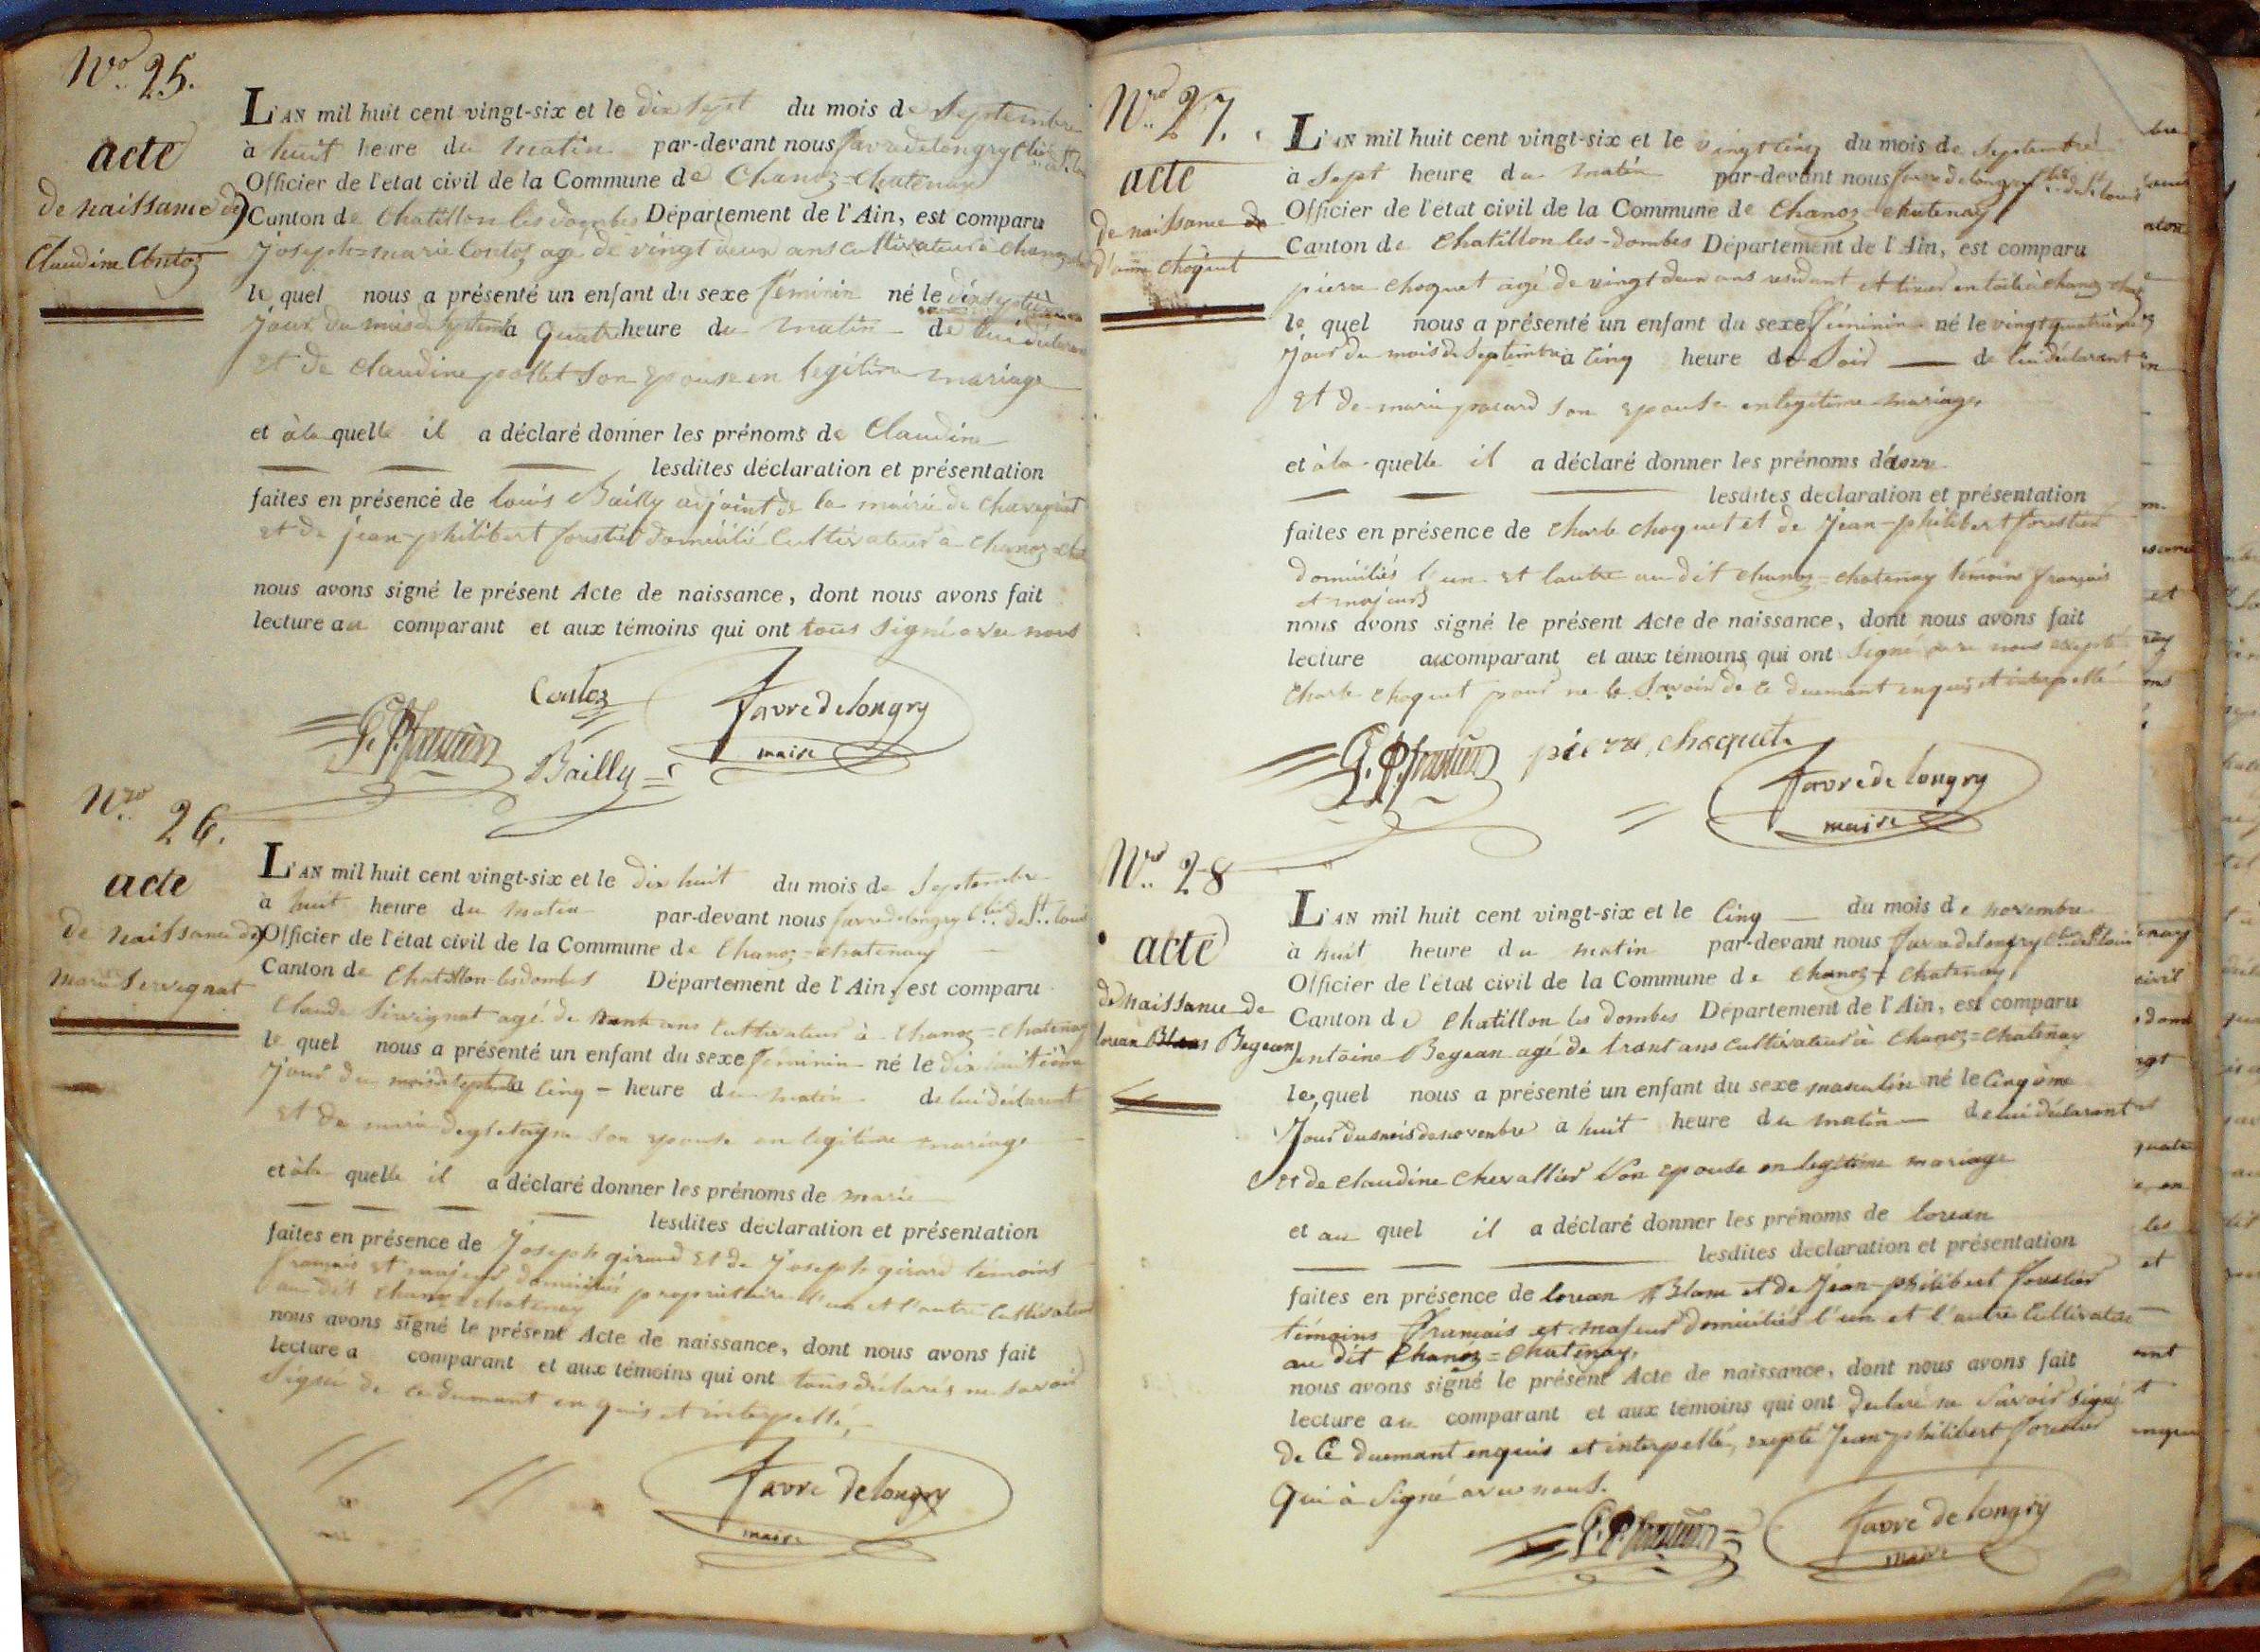 Nro 25.
acte
de naissance de
Claudine Contoz
L'AN mil huit cent vingt-six et le dix sept du mois de Septembre
à huit heure du matin par-devant nous favredelongry
Officier de l'etat civil de la Commune de Chanoz=chatenay
Canton de Chatillon les dombes Département de l'Ain, est comparu
Joseph=marie Contoz agé de vingt deux ans cultivateur à Chanoz
le quel nous a présenté un enfant du sexe féminin né le dix septième
jour du mois de Septembre à quatre heure du matin de lui déclarant
et de claudine pollet Son epouse en legitime mariage
et à la quelle il a déclaré donner les prénoms de Claudine
lesdites déclaration et présentation
faites en présence de louis Bailly adjoint de la mairie de
et de jean-philibert domicilié Cultivateur à Chanoz=
nous avons signé le présent Acte de naissance, dont nous avons fait
lecture au comparant et aux témoins qui ont tous Signé avec nous
Contoz
favredelongry
maire
Bailly
Nro 26.
acte
de naissance de
marie Servignat
L'AN mil huit cent vingt-six et le dix huit du mois de Septembre
à huit heure du matin par-devant nous favredelongry de St. louis
Officier de l'état civil de la Commune de Chanoz=chatenay
Canton de Chatillon-les dombes Département de l'Ain, est comparu
Claude Servignat agé de ans Cultivateur à Chanoz=chatenay
le quel nous a présenté un enfant du sexe féminin né le dix huitième
jour du mois de Septembre à Cinq heure du matin de lui déclarant
et de marie Son epouse en legitime mariage
et à la quelle il a déclaré donner les prénoms de marie
lesdites déclaration et présentation
faites en présence de Joseph giraud et de Joseph girard témoins
francais et majeurs domiciliés propriétaire l'un et l'autre Cultivateur
au dit Chanoz=chatenay
nous avons signé le présent Acte de naissance, dont nous avons fait
lecture a comparant et aux témoins qui ont tous déclarés ne Savoir
Signer de ce dument enquis et interpellé,
favre delongry
maire
Nro 27.
acte
de naissance de
d'anne choquet
L'AN mil huit cent vingt-six et le vingt cinq du mois de Septembre
à Sept heure du matin par-devant nous favredelongry de St. louis
Officier de l'état civil de la Commune de Chanoz=chatenay
Canton de Chatillon les-dombes Département de l'Ain, est comparu
pierre choquet agé de vingt deux ans residant et tireur en toile à Chanoz
le quel nous a présenté un enfant du sexe féminin né le vingt quatrième
jour du mois de Septembre à Cinq heure du Soir de lui déclarant
et de marie Son epouse en legitime mariage
et à la quelle il a déclaré donner les prénoms d'anne
lesdites declaration et présentation
faites en présence de Charle choquet et de Jean-philibert
domiciliés l'un et l'autre au dit Chanoz=chatenay témoins français
et majeurs
nous avons signé le présent Acte de naissance, dont nous avons fait
lecture au comparant et aux témoins qui ont Signé avec nous excepté
Charle choquet pour ne le Savoir de ce duemant enquis et interpellé
pierre choquet
favre de longry
maire
Nro 28
acte
de naissance de
lorean Begean
L'AN mil huit cent vingt-six et le Cinq du mois de novembre
à huit heure du matin par-devant nous favredelongry de St louis
Officier de l'état civil de la Commune de Chanoz=chatenay
Canton de Chatillon les dombes Département de l'Ain, est comparu
antoine Begean agé de trant ans Cultivateur à Chanoz=chatenay
le quel nous a présenté un enfant du sexe masculin né le Cinqème
Jour du mois de novembre à huit heure du matin de lui déclarant
et de claudine Chevallier Son epouse en legitime mariage
et au quel il a déclaré donner les prénoms de lorean
lesdites declaration et présentation
faites en présence de lorean Blanc et de Jean-philibert
témoins Francais et majeur domiciliés l'un et l'autre Cultivateur
au dit Chanoz=chatenay,
nous avons signé le présent Acte de naissance, dont nous avons fait
lecture au comparant et aux témoins qui ont declaré ne Savoir Signé
de Ce duemant enquis et interpellé, excepté Jean philibert
Qui à Signé avec nous.
favre de longry
maire